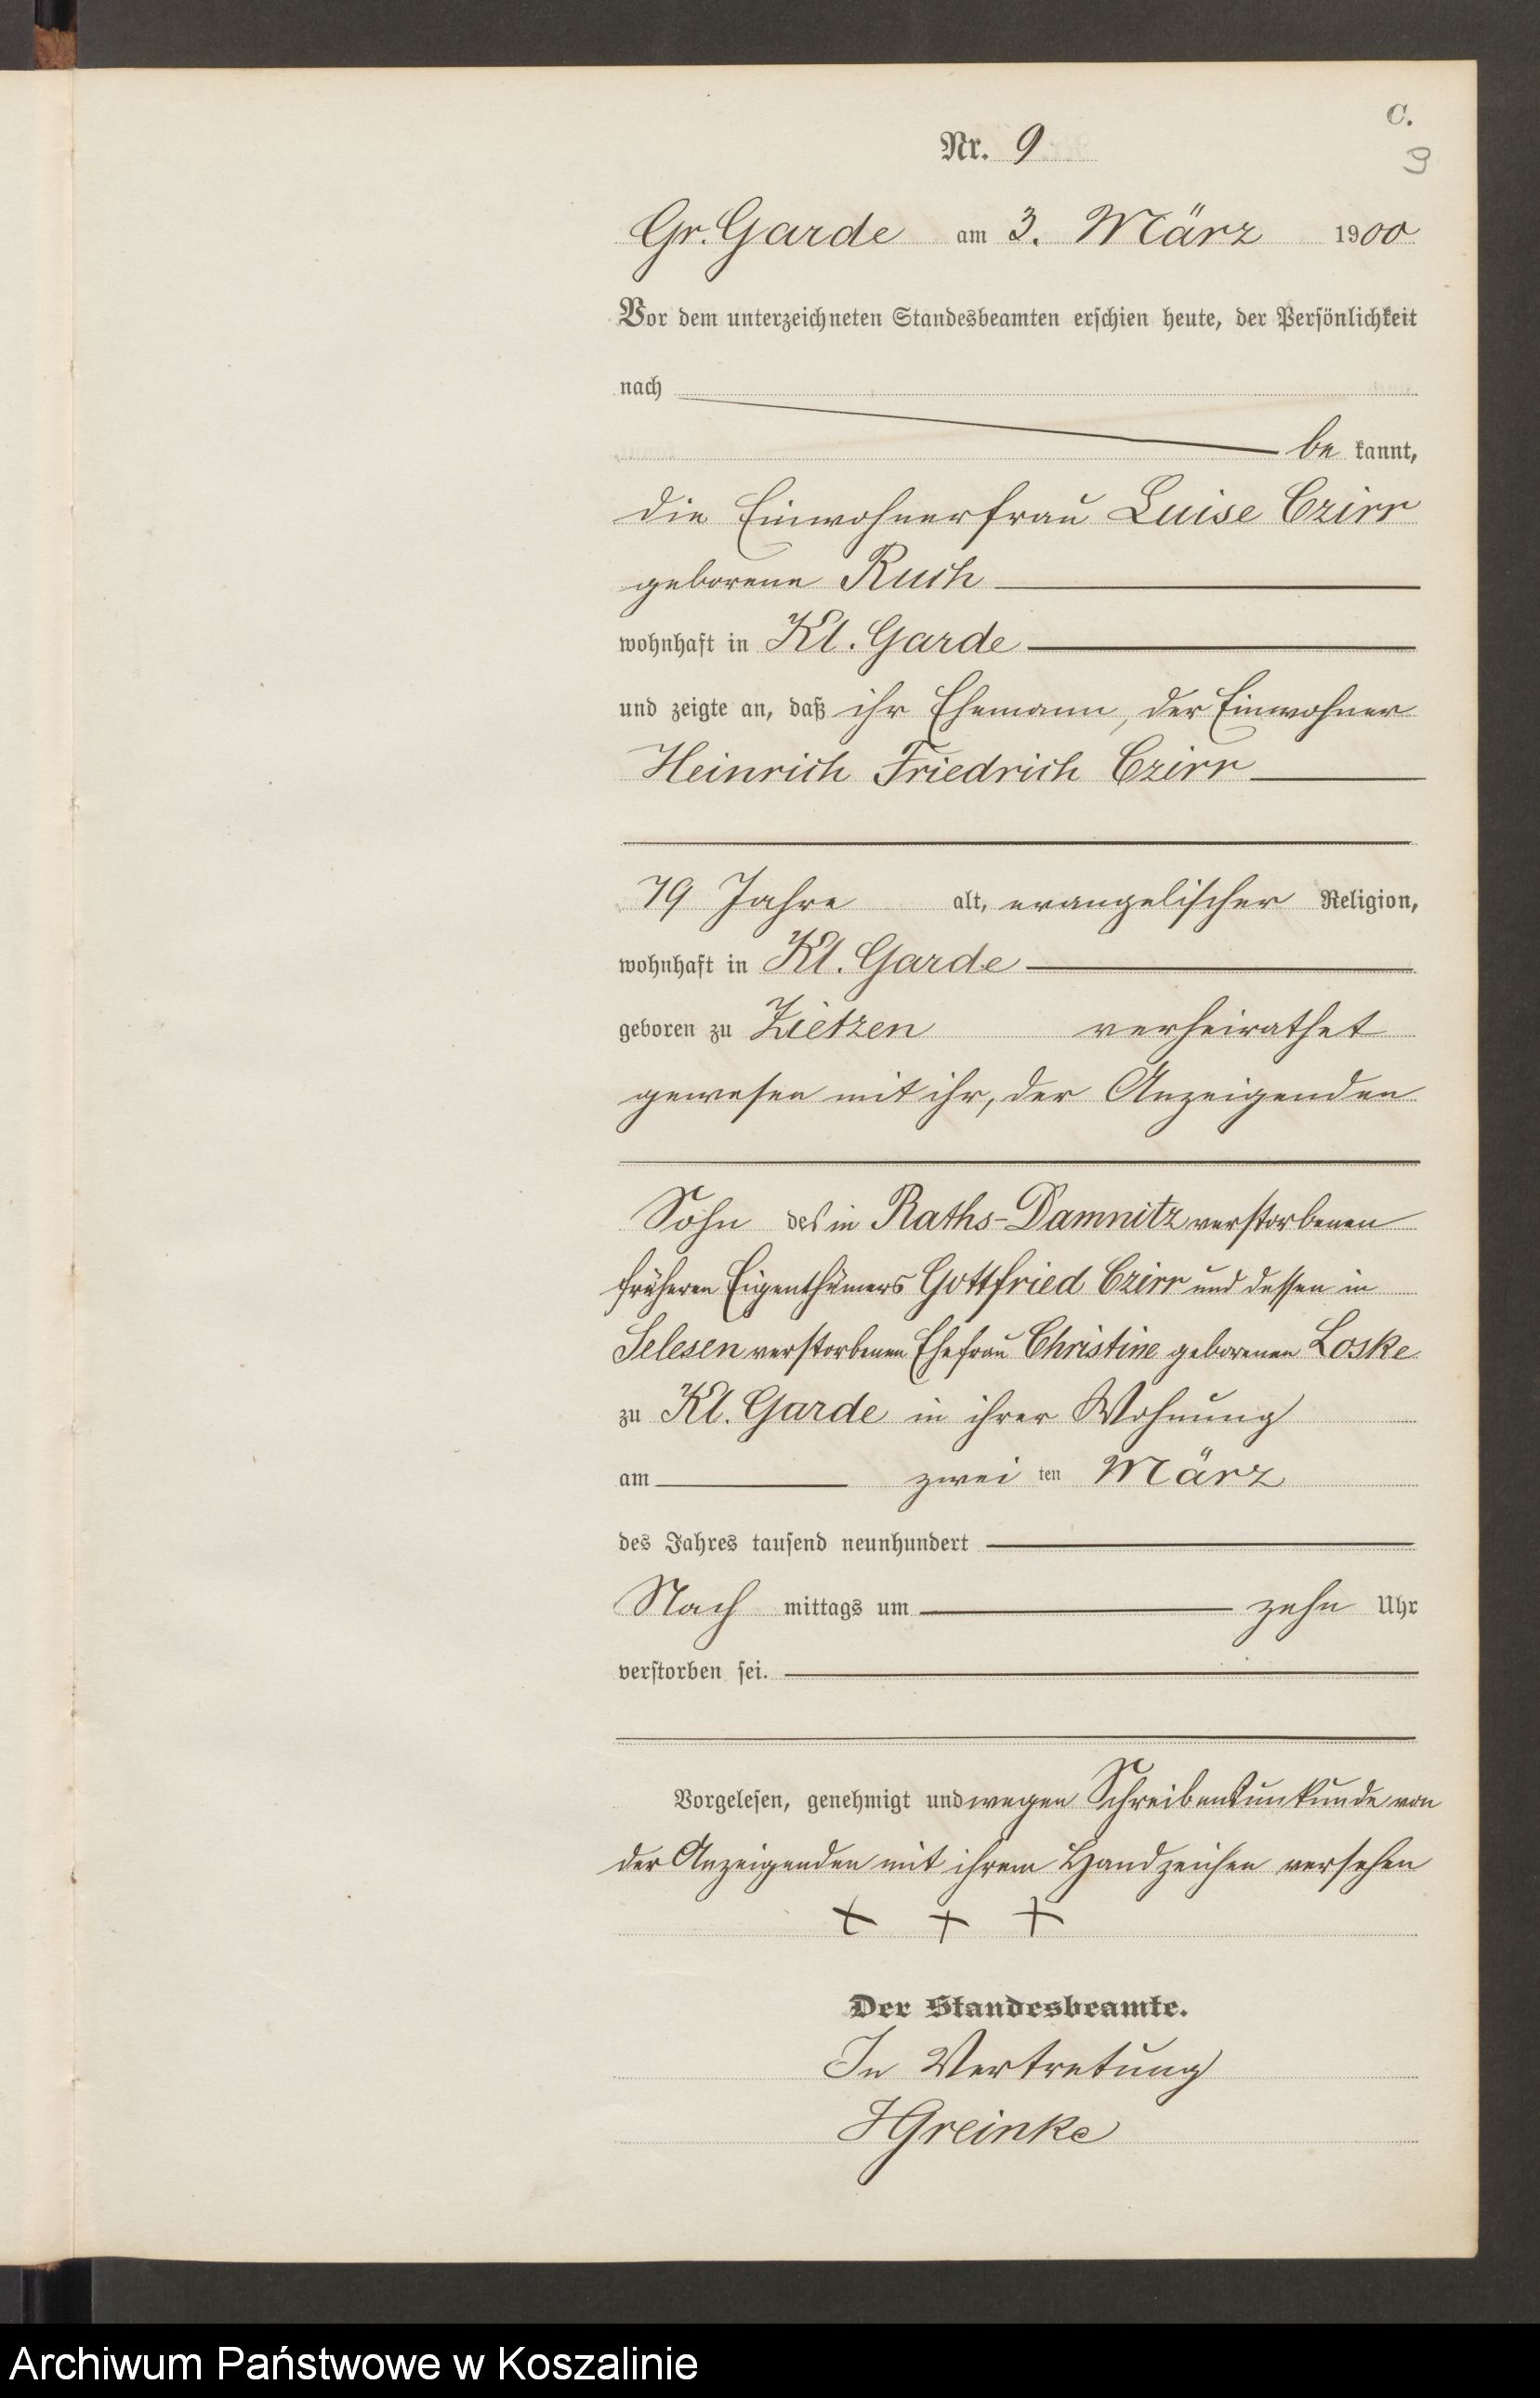 C.
Nr. 9
9
Gr. Garde am 3. März 1900
Vor dem unterzeichneten Standesbeamten erschien heute, der Persönlichkeit
nach
be kannt,
die Einwohnerfrau Luise Czirr
geborene Ruch
wohnhaft in Kl. Garde
und zeigte an, daß ihr Ehemann, der Einwohner
Heinrich Friedrich Czirr
79 Jahre alt, evangelischer Religion,
wohnhaft in Kl. Garde
geboren zu Zietzen verheirathet
gewesen mit ihr, der Anzeigenden
Sohn des in Raths-Damnitz verstorbenen
früheren Eigenthümers Gottfried Czirr und dessen in
Selesen verstorbenen Ehefrau Christine geborenen Loske
zu Kl. Garde in ihrer Wohnung
am zwei ten März
des Jahres tausend neunhundert
Nach mittags um zehn Uhr
verstorben sei.
Vorgelesen, genehmigt und wegen Schreibensunkunde von
der Anzeigenden mit ihrem Handzeichen versehen
+ + +
Der Standesbeamte.
In Vertretung
HGreinke
Archiwum Państwowe w Koszalinie